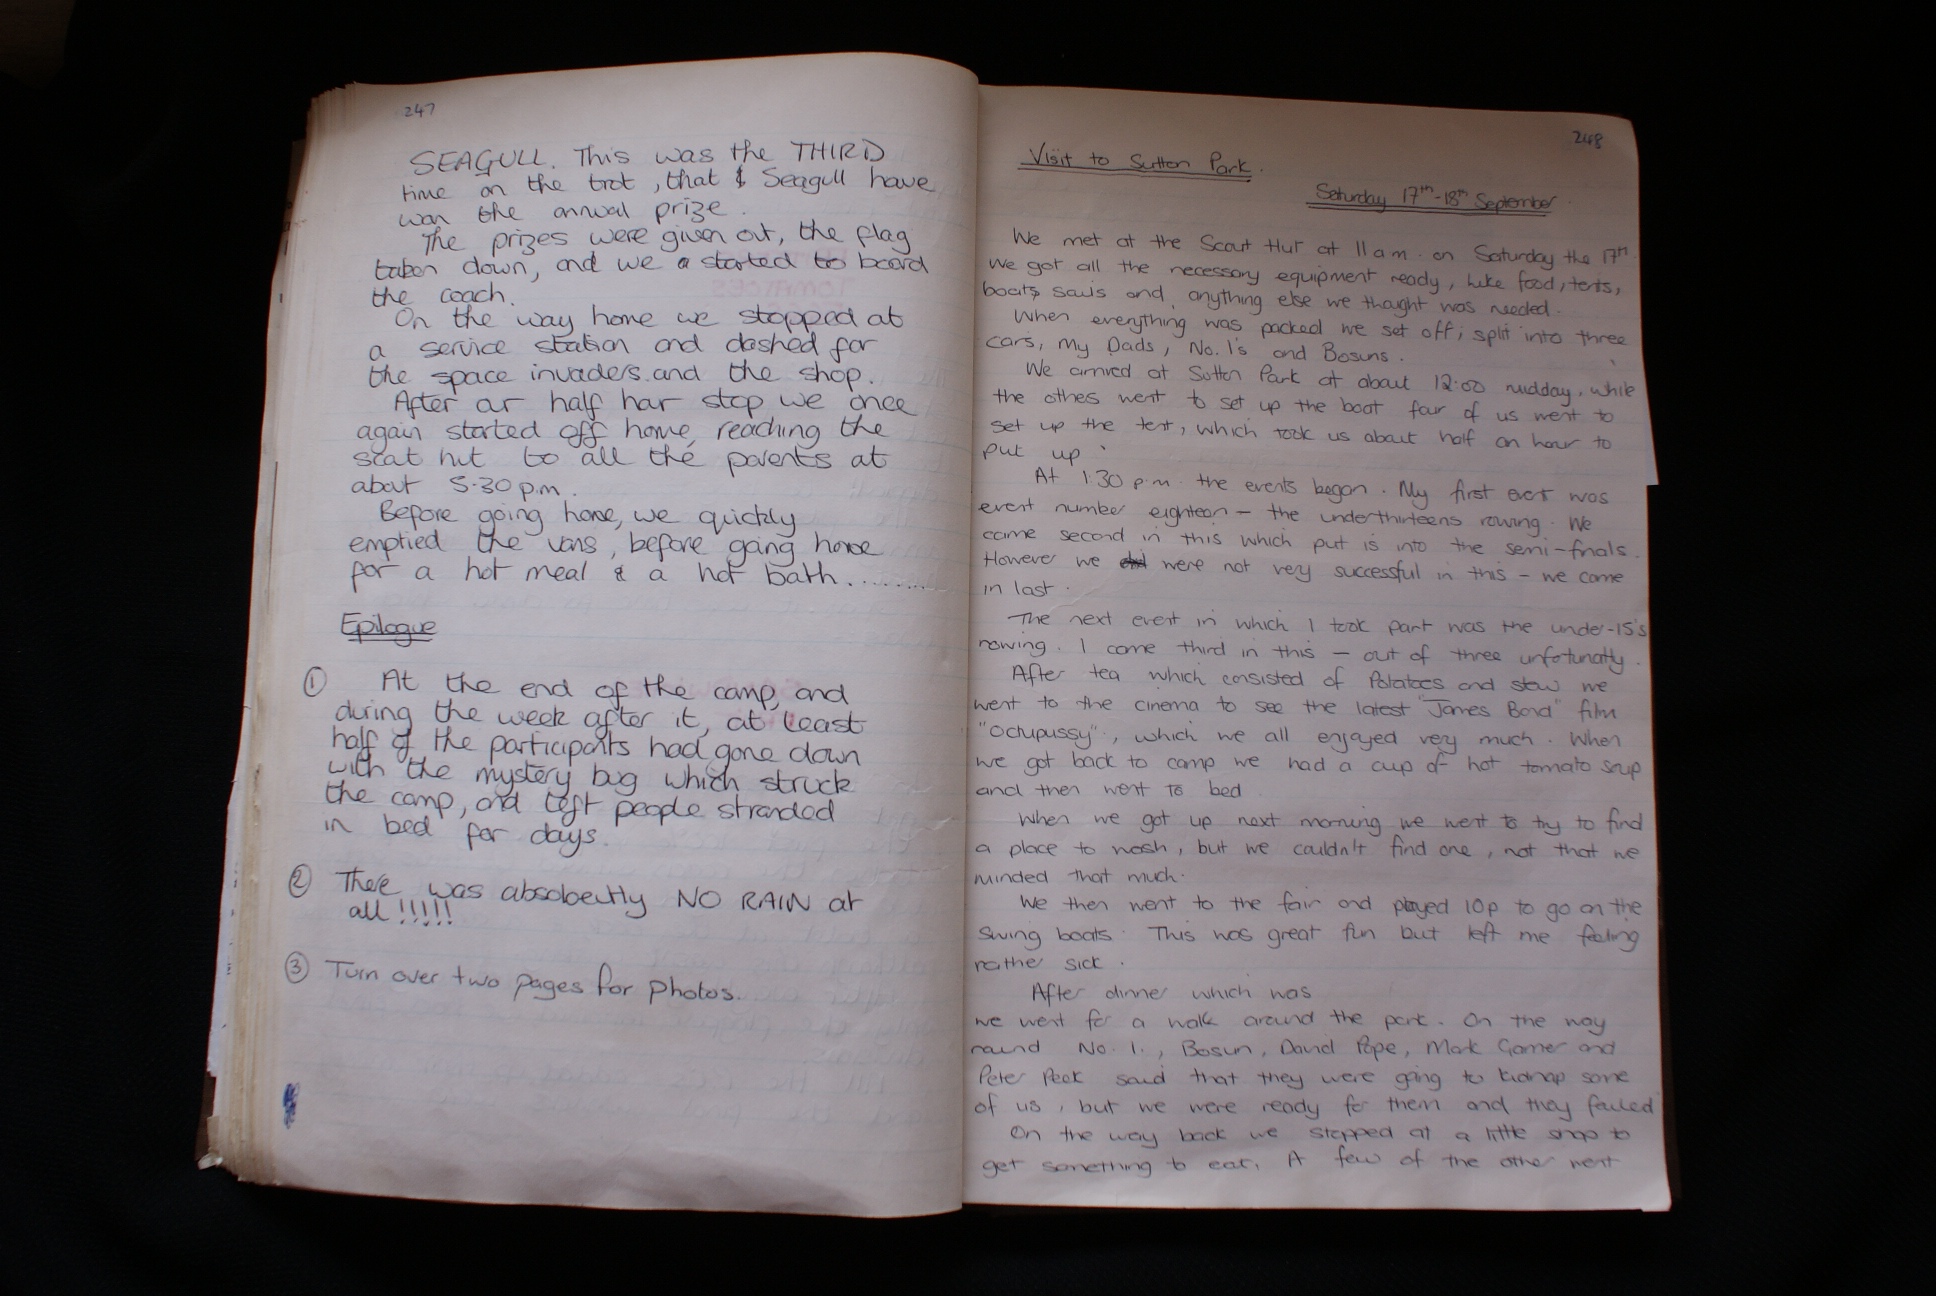 247
SEAGULL. This was the THIRD
time on the trot, that & Seagull have
won the annual prize.
The prizes were given out, the flag
taken down, and we a started to board
the coach.
On the way home we stopped at
a service station and dashed for
the space invaders and the shop.
After our half hour stop we once
again started off home, reaching the
scout hut to all the parents at
about 5.30 p.m.
Before going home, we quickly
emptied the vans, before going home
for a hot meal & a hot bath.........
Epilogue
① At the end of the camp, and
during the week after it, at least
half of the participants had gone down
with the mystery bug which struck
the camp, and left people stranded
in bed for days.
② There was absoloeutly NO RAIN at
all !!!!!
③ Turn over two pages for photos.
248
Visit to Sutton Park.
Saturday 17th-18th September.
We met at the Scout Hut at 11am. on Saturday the 17th.
We got all the necessary equipment ready, like food, tents,
boats, sails and, anything else we thought was needed.
When everything was packed we set off; split into three
cars, my Dads, No.1's and Bosuns.
We arrived at Sutton Park at about 12.00 midday, while
the others went to set up the boat four of us went to
set up the tent, which took us about half an hour to
put up.
At 1.30 p.m. the events began. My first event was
event number eighteen - the underthirteens rowing. We
came second in this which put is into the semi-finals.
However we were not very successful in this - we came
in last.
The next event in which I took part was the under-15's
rowing. I came third in this - out of three unfortunatly.
After tea which consisted of Potatoes and stew we
went to the cinema to see the latest "James Bond" film
"Octupussy", which we all enjoyed very much. When
we got back to camp we had a cup of hot tomato soup
and then went to bed
When we got up next morning we went to try to find
a place to wash, but we couldn't find one, not that we
minded that much.
We then went to the fair and played 10p to go on the
swing boats. This was great fun but left me feeling
rather sick.
After dinner which was
we went for a walk around the park. On the way
round No. 1., Bosun, David Pope, Mark Garner and
Peter Peck said that they were going to kidnap some
of us, but we were ready for them and they failed
On the way back we stopped at a little shop to
get something to eat. A few of the other went